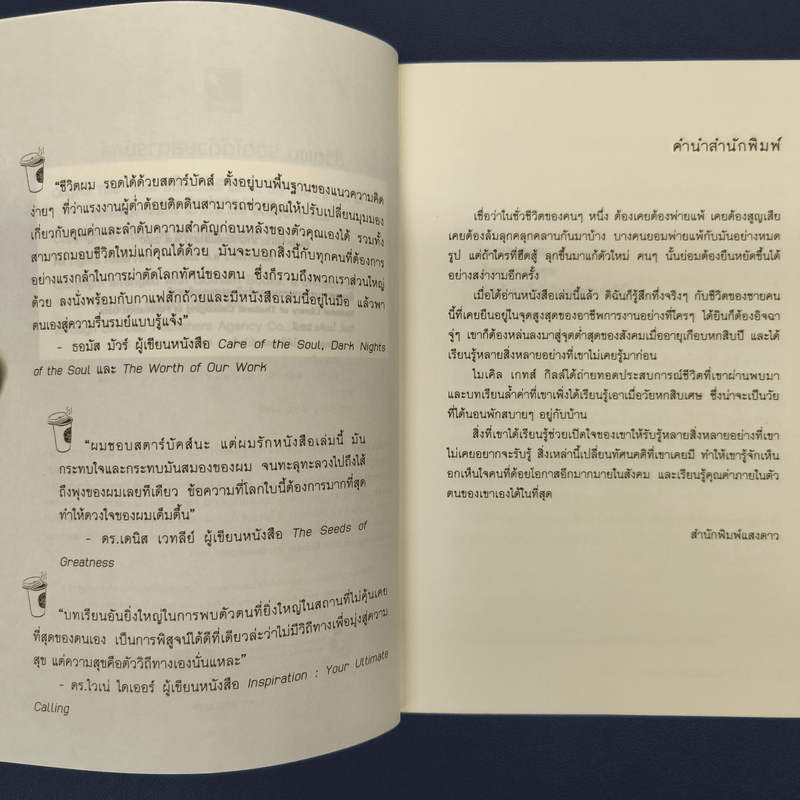 “ชีวิตผม รอดได้ด้วยสตาร์บัคส์ ตั้งอยู่บนพื้นฐานของแนวความคิด
ง่ายๆ ที่ว่าแรงงานผู้ต่ำต้อยติดดินสามารถช่วยคุณให้ปรับเปลี่ยนมุมมอง
เกี่ยวกับคุณค่าและลำดับความสำคัญก่อนหลังของตัวคุณเองได้ รวมทั้ง
สามารถมอบชีวิตใหม่แก่คุณได้ด้วย มันจะบอกสิ่งนี้กับทุกคนที่ต้องการ
อย่างแรงกล้าในการผ่าตัดโลกทัศน์ของตน ซึ่งก็รวมถึงพวกเราส่วนใหญ่
ด้วย ลงนั่งพร้อมกับกาแฟสักถ้วยและมีหนังสือเล่มนี้อยู่ในมือ แล้วพา
ตนเองสู่ความรื่นรมย์แบบรู้แจ้ง”
- ธอมัส มัวร์ ผู้เขียนหนังสือ Care of the Soul, Dark Nights
of the Soul และ The Worth of Our Work
“ผมชอบสตาร์บัคส์นะ แต่ผมรักหนังสือเล่มนี้ มัน
กระทบใจและกระทบมันสมองของผม จนทะลุทะลวงไปถึงไส้
ถึงพุงของผมเลยทีเดียว ข้อความที่โลกใบนี้ต้องการมากที่สุด
ทำให้ดวงใจของผมเต็มตื้น”
- ดร.เดนิส เวทลีย์ ผู้เขียนหนังสือ The Seeds of
Greatness
“บทเรียนอันยิ่งใหญ่ในการพบตัวตนที่ยิ่งใหญ่ในสถานที่ไม่คุ้นเคย
ที่สุดของตนเอง เป็นการพิสูจน์ได้ดีที่เดียวล่ะว่าไม่มีวิถีทางเพื่อมุ่งสู่ความ
สุข แต่ความสุขคือตัววิถีทางเองนั่นแหละ”
- ดร.ไวเน่ ไดเออร์ ผู้เขียนหนังสือ Inspiration : Your Ultimate
Calling
คำนำสำนักพิมพ์
เชื่อว่าในชั่วชีวิตของคนๆ หนึ่ง ต้องเคยต้องพ่ายแพ้ เคยต้องสูญเสีย
เคยต้องล้มลุกคลุกคลานกันมาบ้าง บางคนยอมพ่ายแพ้กับมันอย่างหมด
รูป แต่ถ้าใครที่ฮึดสู้ ลุกขึ้นมาแก้ตัวใหม่ คนๆ นั้นย่อมต้องยืนหยัดขึ้นได้
อย่างสง่างามอีกครั้ง
เมื่อได้อ่านหนังสือเล่มนี้แล้ว ดิฉันก็รู้สึกทึ่งจริงๆ กับชีวิตของชายคน
นี้ที่เคยยืนอยู่ในจุดสูงสุดของอาชีพการงานอย่างที่ใครๆ ได้ยินก็ต้องอิจฉา
จู่ๆ เขาก็ต้องหล่นลงมาสู่จุดต่ำสุดของสังคมเมื่ออายุเกือบหกสิบปี และได้
เรียนรู้หลายสิ่งหลายอย่างที่เขาไม่เคยรู้มาก่อน
ไมเคิล เกทส์ กิลล์ได้ถ่ายทอดประสบการณ์ชีวิตที่เขาผ่านพบมา
และบทเรียนล้ำค่าที่เขาเพิ่งได้เรียนรู้เอาเมื่อวัยหกสิบเศษ ซึ่งน่าจะเป็นวัย
ที่ได้นอนพักสบายๆ อยู่กับบ้าน
สิ่งที่เขาได้เรียนรู้ช่วยเปิดใจของเขาให้รับรู้หลายสิ่งหลายอย่างที่เขา
ไม่เคยอยากจะรับรู้ สิ่งเหล่านี้เปลี่ยนทัศนคติที่เขาเคยมี ทำให้เขารู้จักเห็น
อกเห็นใจคนที่ด้อยโอกาสอีกมากมายในสังคม และเรียนรู้คุณค่าภายในตัว
ตนของเขาเองได้ในที่สุด
สำนักพิมพ์แสงดาว